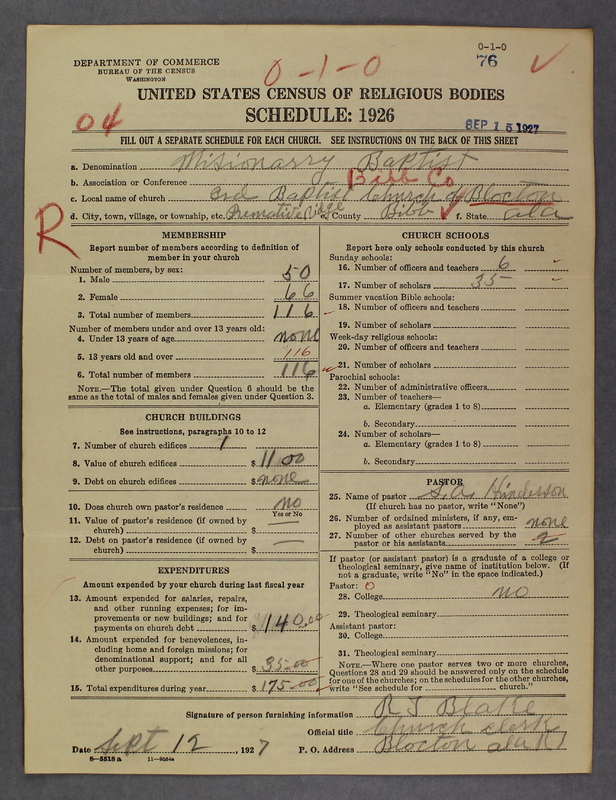 0-1-0
DEPARTMENT OF COMMERCE
76
BUREAU OF THE CENSUS
WASHINGTON
0-1-0
UNITED STATES CENSUS OF RELIGIOUS BODIES
04
SCHEDULE: 1926
SEP 15 1927
FILL OUT A SEPARATE SCHEDULE FOR EACH CHURCH. SEE INSTRUCTIONS ON THE BACK OF THIS SHEET
a. Denomination Misionarry Baptist
b. Association or Conference Bibb Co
c. Local name of church 3rd Baptist Church of Blocton
d. City, town, village, or township, etc. Ridge e. County Bibb f. State ala
R
MEMBERSHIP
Report number of members according to definition of
member in your church
Number of members, by sex:
1. Male 50
2. Female 66
3. Total number of members 116
Number of members under and over 13 years old:
4. Under 13 years of age none
5. 13 years old and over 116
6. Total number of members 116
NOTE.—The total given under Question 6 should be
same as the total of males and females given under Question 3.
CHURCH BUILDINGS
See instructions, paragraphs 10 to 12
7. Number of church edifices 1
8. Value of church edifices $ 1100
9. Debt on church edifices $ none
10. Does church own pastor's residence no
Yes or No
11. Value of pastor's residence (if owned by
church) $ —
12. Debt on pastor's residence (if owned by
church) $ —
EXPENDITURES
Amount expended by your church during last fiscal year
13. Amount expended for salaries, repairs,
and other running expenses; for im-
provements or new buildings; and for
payments on church debt $ 140.00
14. Amount expended for benevolences, in-
cluding home and foreign missions; for
denominational support; and for all
other purposes $ 35.00
15. Total expenditures during year $ 175.00
CHURCH SCHOOLS
Report here only schools conducted by this church
Sunday schools:
16. Number of officers and teachers 6
17. Number of scholars 35
Summer vacation Bible schools:
18. Number of officers and teachers
19. Number of scholars
Week-day religious schools:
20. Number of officers and teachers
21. Number of scholars
Parochial schools:
22. Number of administrative officers
23. Number of teachers—
a. Elementary (grades 1 to 8)
b. Secondary
24. Number of scholars—
a. Elementary (grades 1 to 8)
b. Secondary
PASTOR
25. Name of pastor S. A. Hinderson
(If church has no pastor, write "None")
26. Number of ordained ministers, if any, em-
ployed as assistant pastors none
27. Number of other churches served by the
pastor or his assistants 2
If pastor (or assistant pastor) is a graduate of a college or
theological seminary, give name of institution below. (If
not a graduate, write "No" in the space indicated.)
Pastor: 0
28. College no
29. Theological seminary
Assistant pastor:
30. College
31. Theological seminary
NOTE.—Where one pastor serves two or more churches,
Questions 28 and 29 should be answered only on the schedule
for one of the churches; on the schedules for the other churches,
write "See schedule for church."
Signature of person furnishing information R J Blake
Official title Church clerk
Date Sept 12, 1927 P. O. Address Blocton ala R1
8—5518 a 11—9054a